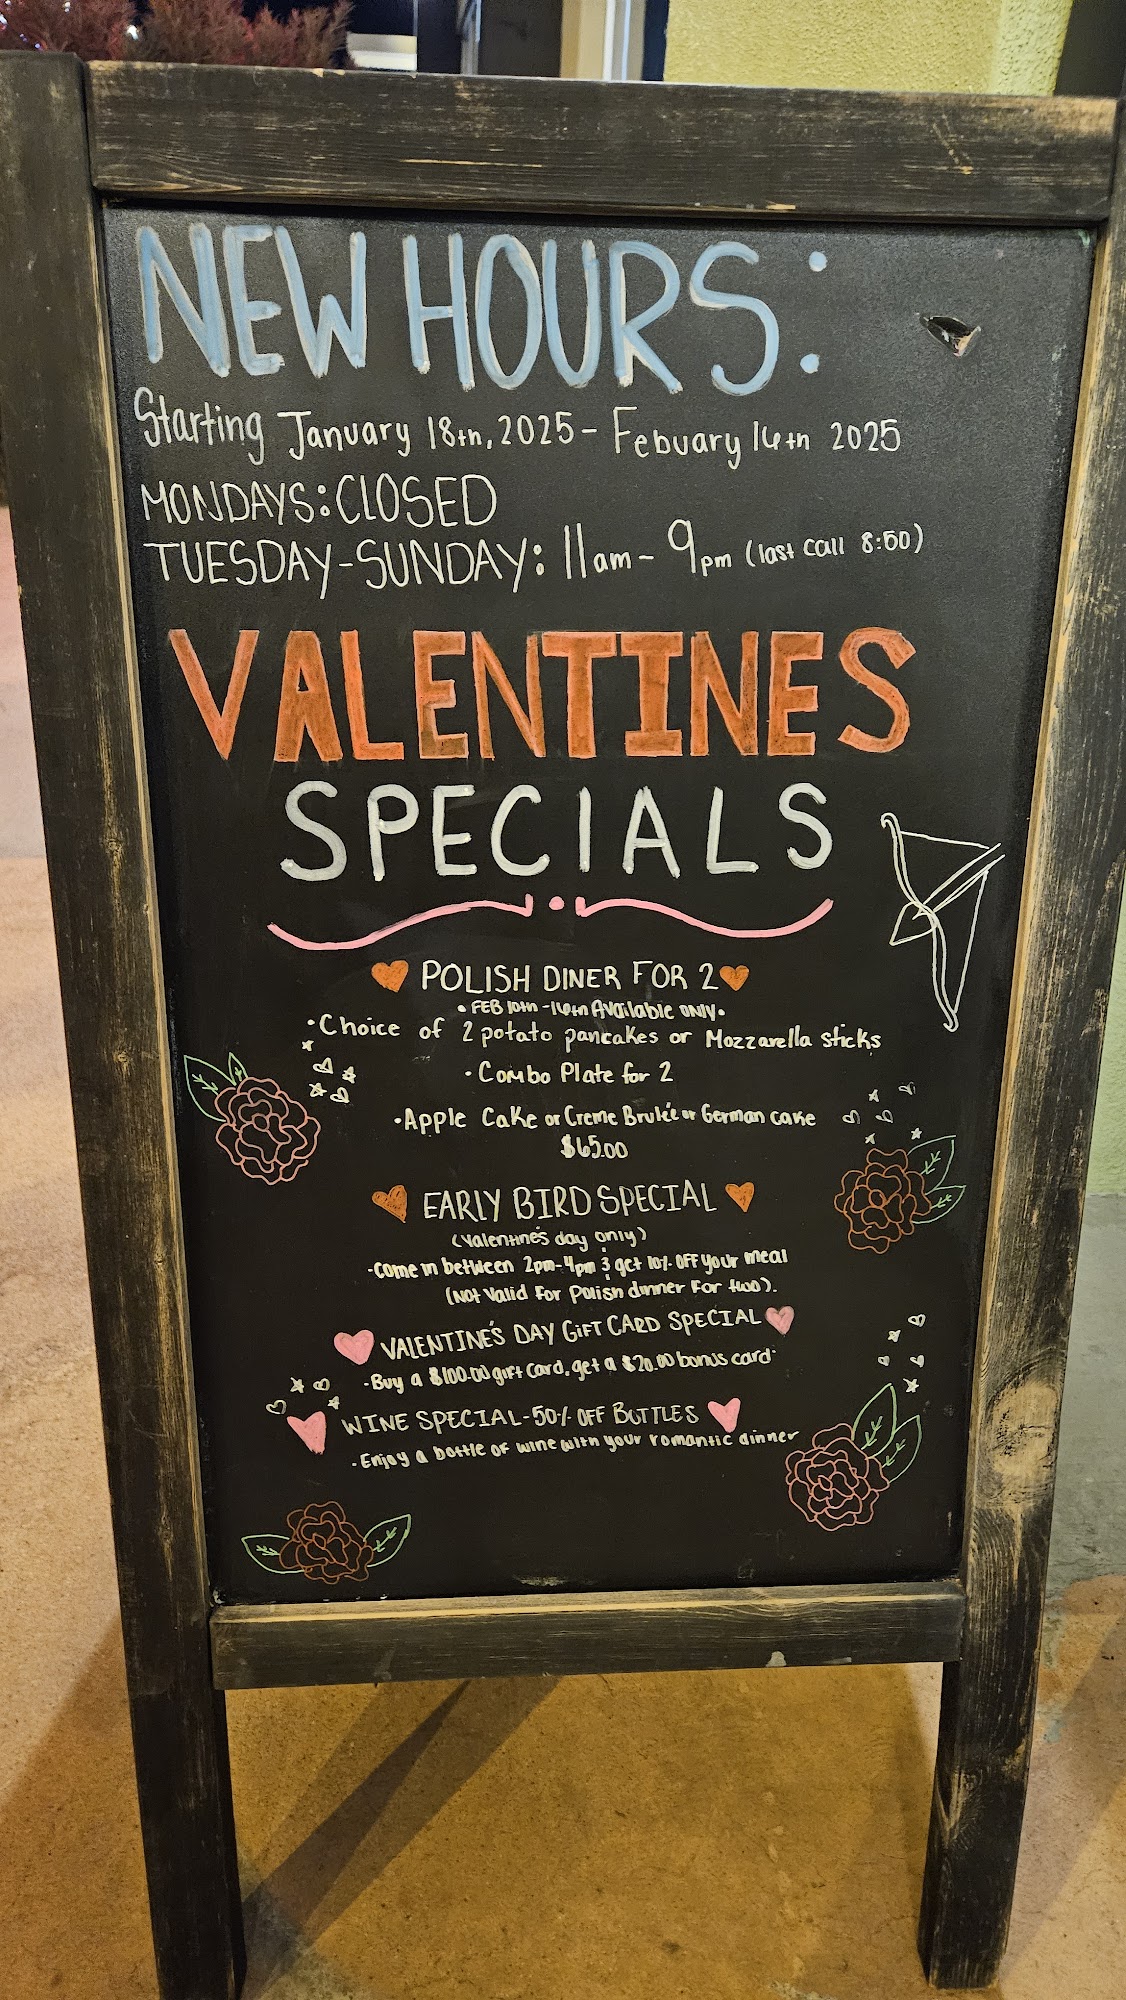 NEW HOURS:
Starting January 18th, 2025 - Febuary 16th 2025
MONDAYS: CLOSED
TUESDAY-SUNDAY: 11am - 9pm (last call 8:50)
VALENTINES
SPECIALS
POLISH DINER FOR 2
• FEB 10th - 16th Available ONLY•
• Choice of 2 potato pancakes or Mozzarella sticks
• Combo Plate for 2
• Apple Cake or Creme Brulée or German cake
$65.00
EARLY BIRD SPECIAL
(Valentine's day only)
-Come in between 2pm-4pm & get 10% OFF your meal
(Not Valid For Polish dinner For two).
VALENTINE'S DAY GiFT CARD SPECIAL
-Buy a $100.00 gift card, get a $20.00 bonus card
WINE SPECIAL-50% OFF BOTTLES
-Enjoy a bottle of wine with your romantic dinner